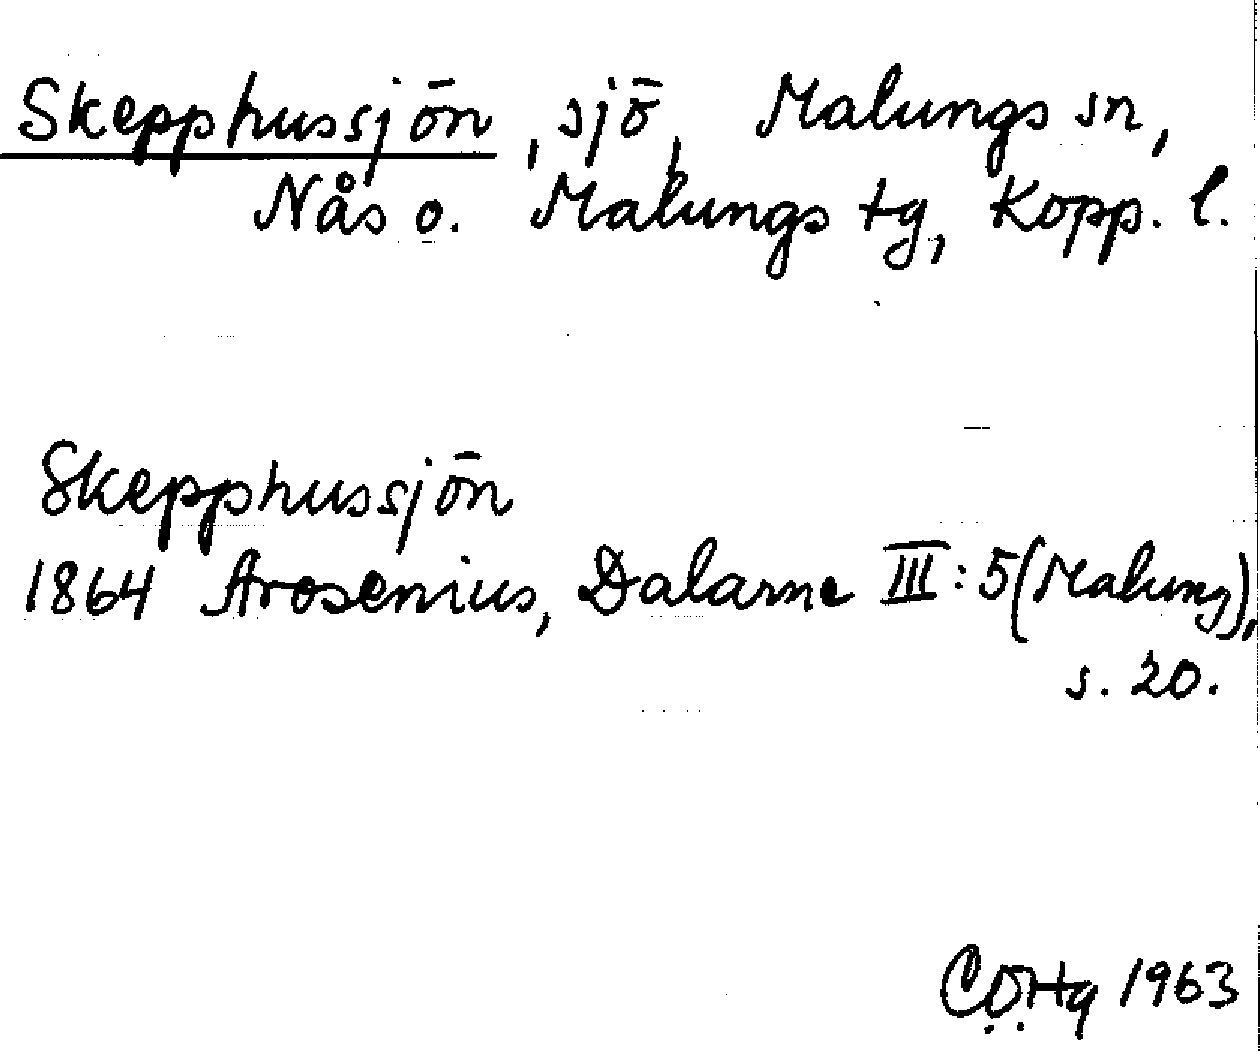 Skepphussjön, sjö, Malungs sn,
Nås o. Malungs tg, Kopp. l.
Skepphussjön
1864 Arosenius, Dalarne III:5 (Malung),
s. 20.
1963